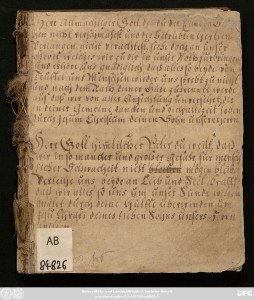 Herr Allmächtiger Gott der du der
zen nicht verschmähest und der betrübten
Verlangen nicht verachtest, siehe doch an unser
Gebet welches wir zu dir in unser Noth fürbringen
und erhöre uns gnädiglich, daß alles so beyde von
Teüffel und Menschen wieder uns strebt zu nichte
und nach dem Rath deiner Güte zertrennt werde
auf daß wir von aller Anfechtung unversehrt
in deiner Gemeine dancken und dich allezeit loben
durch Jesum Christum deinen Sohn unsern Herrn
Herr Gott himlischer Vater du weist, daß
wir in so mancher und großer Gefahr für mensch
licher Schwachheit nicht mögen bleiben
Verleihe uns beyde an Leib und Seel Krafft
daß wir alles so uns um unser Sünde willen
quälet durch deine Hülffe überwinden um
Jesu Christi deines lieben Sohns unsers Herrn
AB
84826